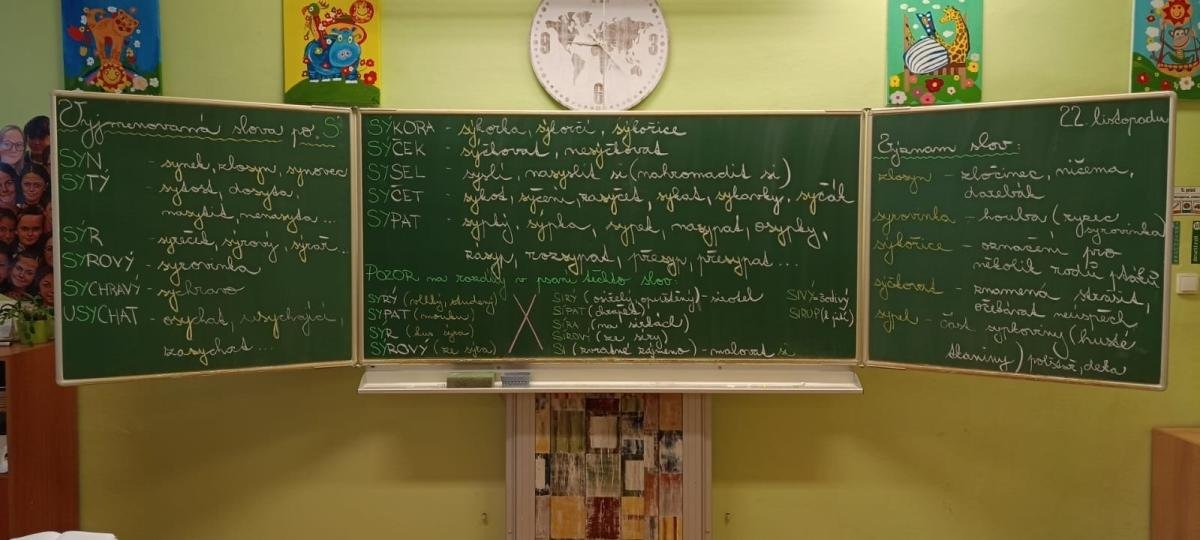 Vyjmenovaná slova po S:
SYN - synek, zlosyn, synovec
SYTÝ - sytost, dosyta,
nasytit, nenasyta ...
SÝR - syreček, sýrový, sýrař ...
SYROVÝ - syrovinka
SYCHRAVÝ - sychravo
USYCHAT - osychat, usychající,
zasychat ...
SÝKORA - sýkorka, sýkorčí, sýkořice
SÝČEK - sýčkovat, nesýčkovat
SYSEL - syslí, nasyslit si (nahromadit si)
SYČET - sykot, syčení, zasyčet, sykat, sykavky, syčák
SYPAT - sypký, sýpka, sypek, nasypat, osypky,
zásyp, rozsypat, přesyp, přesypat ...
POZOR na rozdíly v psaní těchto slov:
SYRÝ (vlhký, studený)
SYPAT (mouku)
SÝR (kus sýra)
SÝROVÝ (ze sýra)
SIRÝ (osiřelý, opuštěný) - sirotek
SÍPAT (chraptět)
SÍRA (na sirkách)
SÍROVÝ (ze síry)
SI (zvratné zájmeno) - malovat si
SIVÝ - šedivý
SIRUP (k pití)
22. listopadu
Význam slov:
zlosyn - zločinec, ničema,
darebák
syrovinka - houba (ryzec
syrovinka)
sýkořice - označení pro
několik rodů ptáků
sýčkovat - znamená strašit,
očekávat neúspěch
sypek - část sypkoviny (husté
tkaniny) polštář, deka
9
3
6